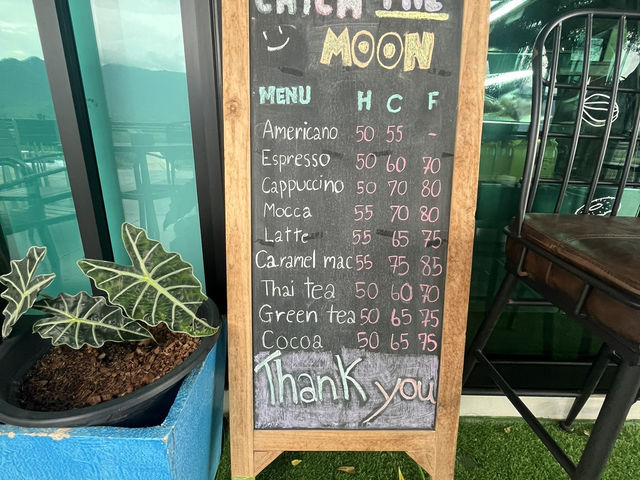 CATCH THE
MOON
MENU H C F
Americano 50 55 -
Espresso 50 60 70
Cappuccino 50 70 80
Mocca 55 70 80
Latte 55 65 75
Caramel mac 55 75 85
Thai tea 50 60 70
Green tea 50 65 75
Cocoa 50 65 75
Thank you